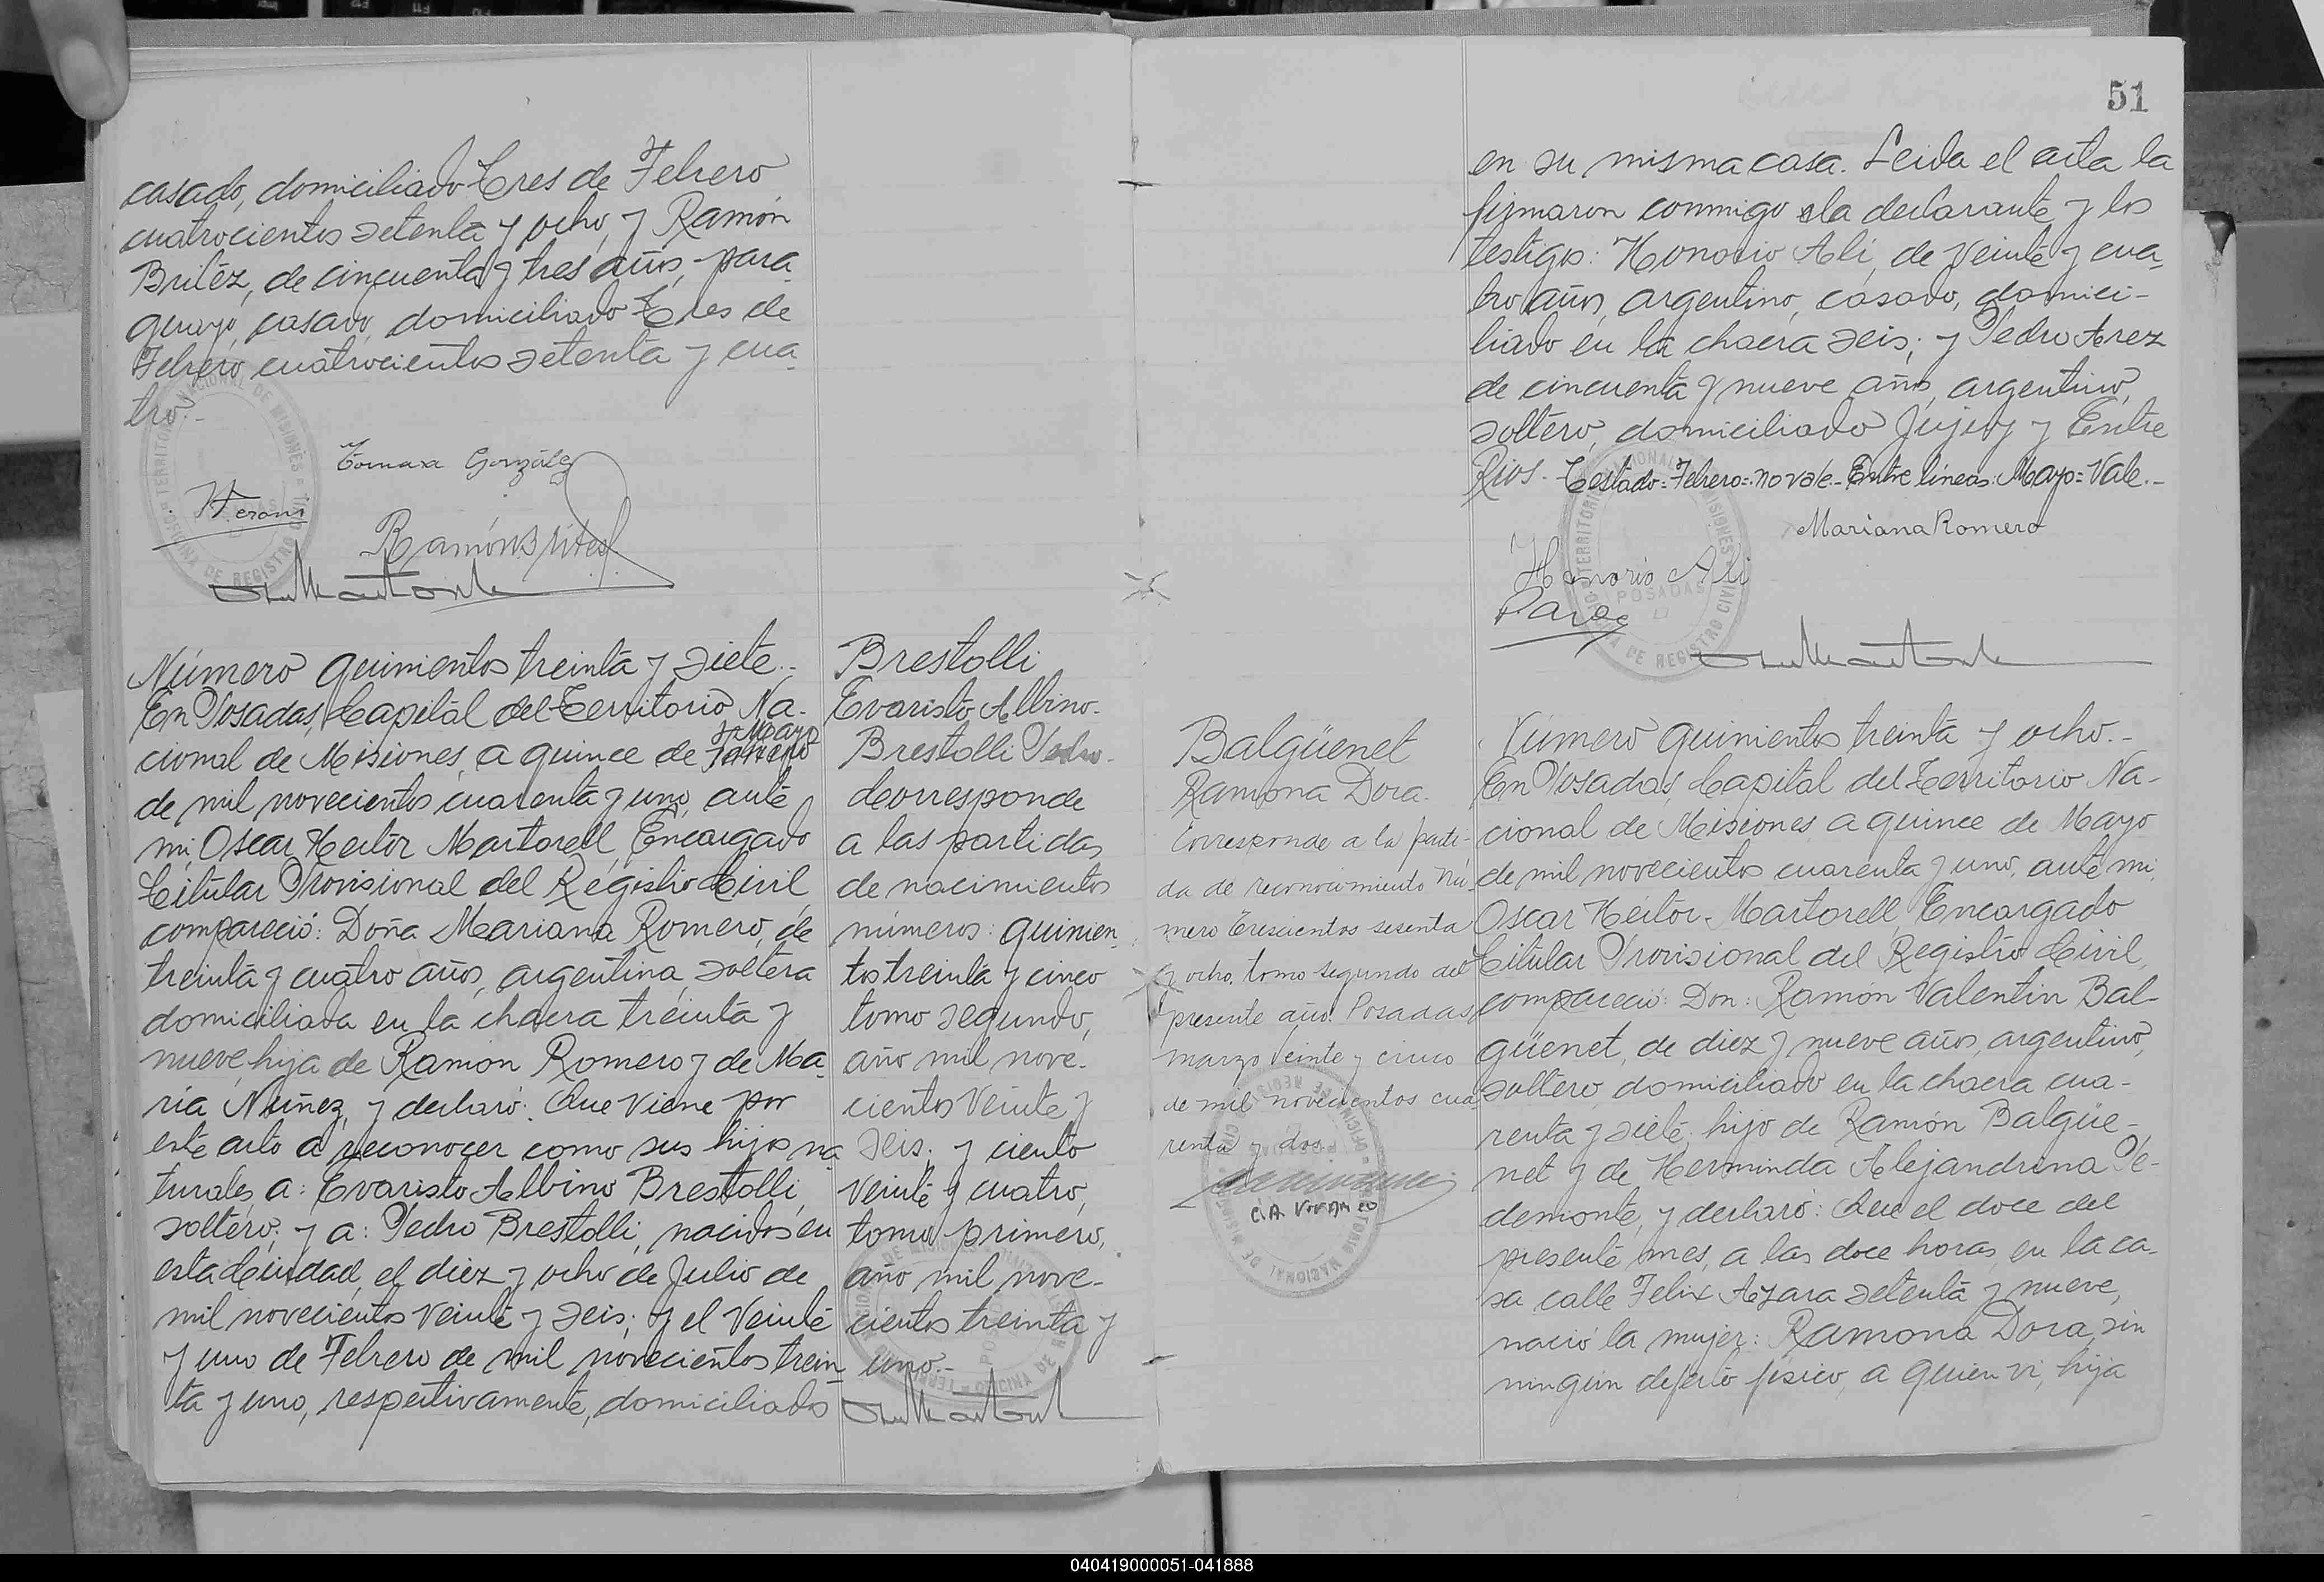 casado, domiciliado Tres de Febrero
cuatrocientos setenta y ocho, y Ramón
Britéz, de cincuenta y tres años, para-
guayo, casado, domiciliado Tres de
Febrero cuatrocientos setenta y cua-
tro.-
Tomasa González
Ramón Brites
Número quinientos treinta y siete.-
En Posadas, Capital del Territorio Na-
cional de Misiones, a quince de Febrero
Mayo
de mil novecientos cuarenta y uno, ante
mi, Oscar Hector Martorell, Encargado
Titular Provisional del Registro Civil,
compareció: Doña Mariana Romero, de
treinta y cuatro años, argentina, soltera
domiciliada en la chacra treinta y
nueve, hija de Ramón Romero y de Ma-
ria Nuñez, y declaró: Que viene por
este acto a reconocer como sus hijos na-
turales, a: Evaristo Albino Brestolli,
soltero; y a: Pedro Brestolli, nacidos en
esta Ciudad, el diez y ocho de Julio de
mil novecientos veinte y seis; y el veinte
y uno de Febrero de mil novecientos trein-
ta y uno, respectivamente, domiciliados
Brestolli
Evaristo Albino-
Brestolli Pedro-
Corresponde
a las partidas
de nacimientos
números: quinien-
tos treinta y cinco
tomo segundo,
año mil nove-
cientos veinte y
seis; y ciento
veinte y cuatro,
tomo primero,
año mil nove-
cientos treinta y
uno.-
51
en su misma casa. Leida el acta la
firmaron conmigo la declarante y los
testigos: Honorio Ali, de veinte y cua-
tro años, argentino, casado, domici-
liado en la chacra seis; y Pedro Arez
de cincuenta y nueve años, argentino,
soltero, domiciliado Jujuy y Entre
Rios.- Testado=Febrero=no vale.- Entre lineas: Mayo=Vale.-
Mariana Romero
Honorio Ali
POSADAS
Balgüenet
Ramona Dora.
Corresponde a la parti-
da de reconocimiento nú-
mero trescientos sesenta
y ocho, tomo segundo del
presente año. Posadas,
marzo veinte y cinco
de mil novecientos cua-
renta y dos.
Número quinientos treinta y ocho.-
En Posadas, Capital del Territorio Na-
cional de Misiones, a quince de Mayo
de mil novecientos cuarenta y uno, ante mi,
Oscar Hector Martorell, Encargado
Titular Provisional del Registro Civil,
compareció: Don: Ramón Valentin Bal-
güenet, de diez y nueve años, argentino,
soltero, domiciliado en la chacra cua-
renta y siete, hijo de Ramón Balgüe-
net y de Herminda Alejandrina Pe-
demonte, y declaró: Que el doce del
presente mes, a las doce horas, en la ca-
sa calle Felix Azara setenta y nueve,
nació la mujer: Ramona Dora, sin
ningun defecto fisico, a quien vi, hija
040419000051-041888